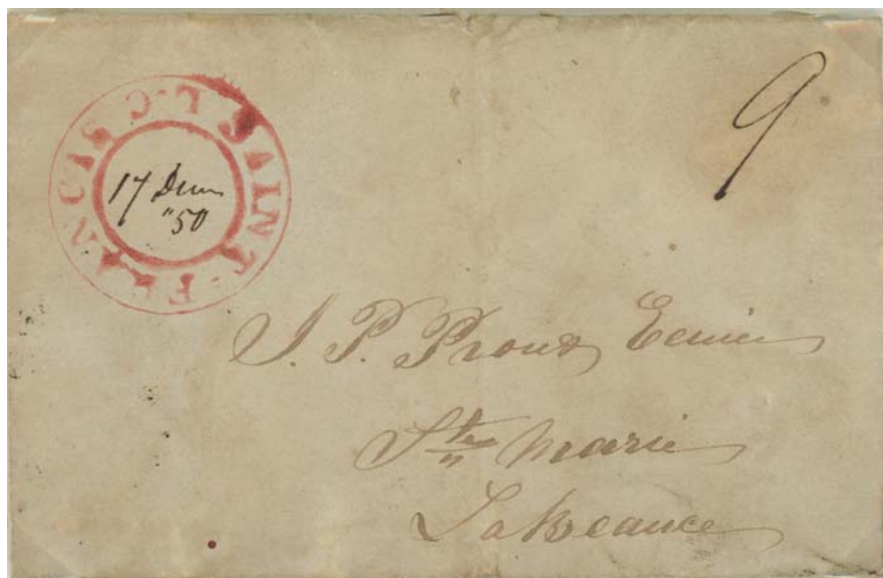 SAINT·FRANCIS L·C
17 Decem
"50
9
J. P. Proulx Ecuier
Ste Marie
La Beauce